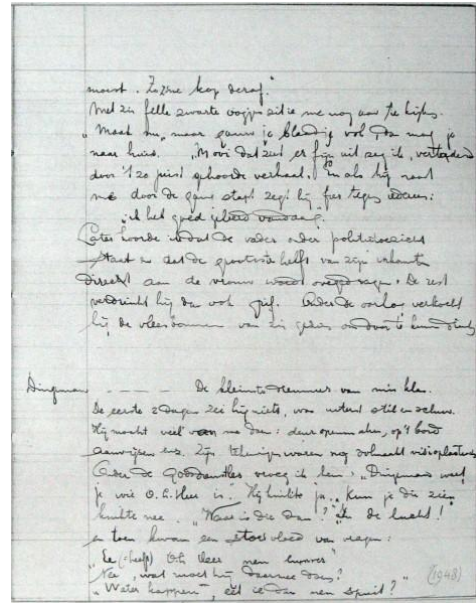 moest. Zo'zne kop deraf."
Met z'n felle zwarte oogjes zit ie me nog aan te kijken.
"Maak nu maar gauw je blaadje vol, dan mag je
naar huis. "Mooi dat ziet er fijn uit zeg ik, vertederd
door 't zo juist gehoorde verhaal. En als hij naast
me door de gang stapt zegt hij fier tegen iedereen:
"ik heb goed geleerd vandaag"
Later hoorde ik dat de vader onder politietoezicht
staat en dat de grootste helft van zijn
direct aan de vrouw wordt overgedragen. De rest
verdrinkt hij dan ook grif. Onder de oorlog verkocht
hij de vleesbonnen van zijn gezin om door te kunnen
Dingeman ---- De kleinste van mijn klas.
De eerste 2 dagen zei hij niets, was uiterst stil en schuw.
Hij mocht veel van me doen: deur openmaken, op 't bord
aanwijzen enz. Zijn tekeningen waren nog
Onder de Godsdienstles vroeg ik hem: "Dingeman weet
je wie O.L. Heer is. Hij knikte ja. "Kun je die zien
knikte nee. "Waar is die dan?" "In de lucht!"
en toen kwam een stortvloed van vragen:
"Ee (heeft) O.L. Heer nen
Nee, wat moet hij daarmee doen?
"Water", eet ie dan nen spuit?"
(1948)